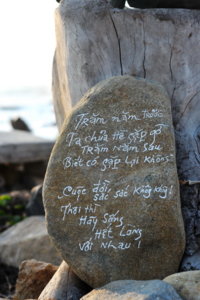 Trăm năm trước
Ta chưa hề gặp gỡ
Trăm năm sau
Biết có gặp lại không?
Cuộc đời
sắc sắc không không!
Thôi thì
Hãy sống
Hết lòng
với nhau!